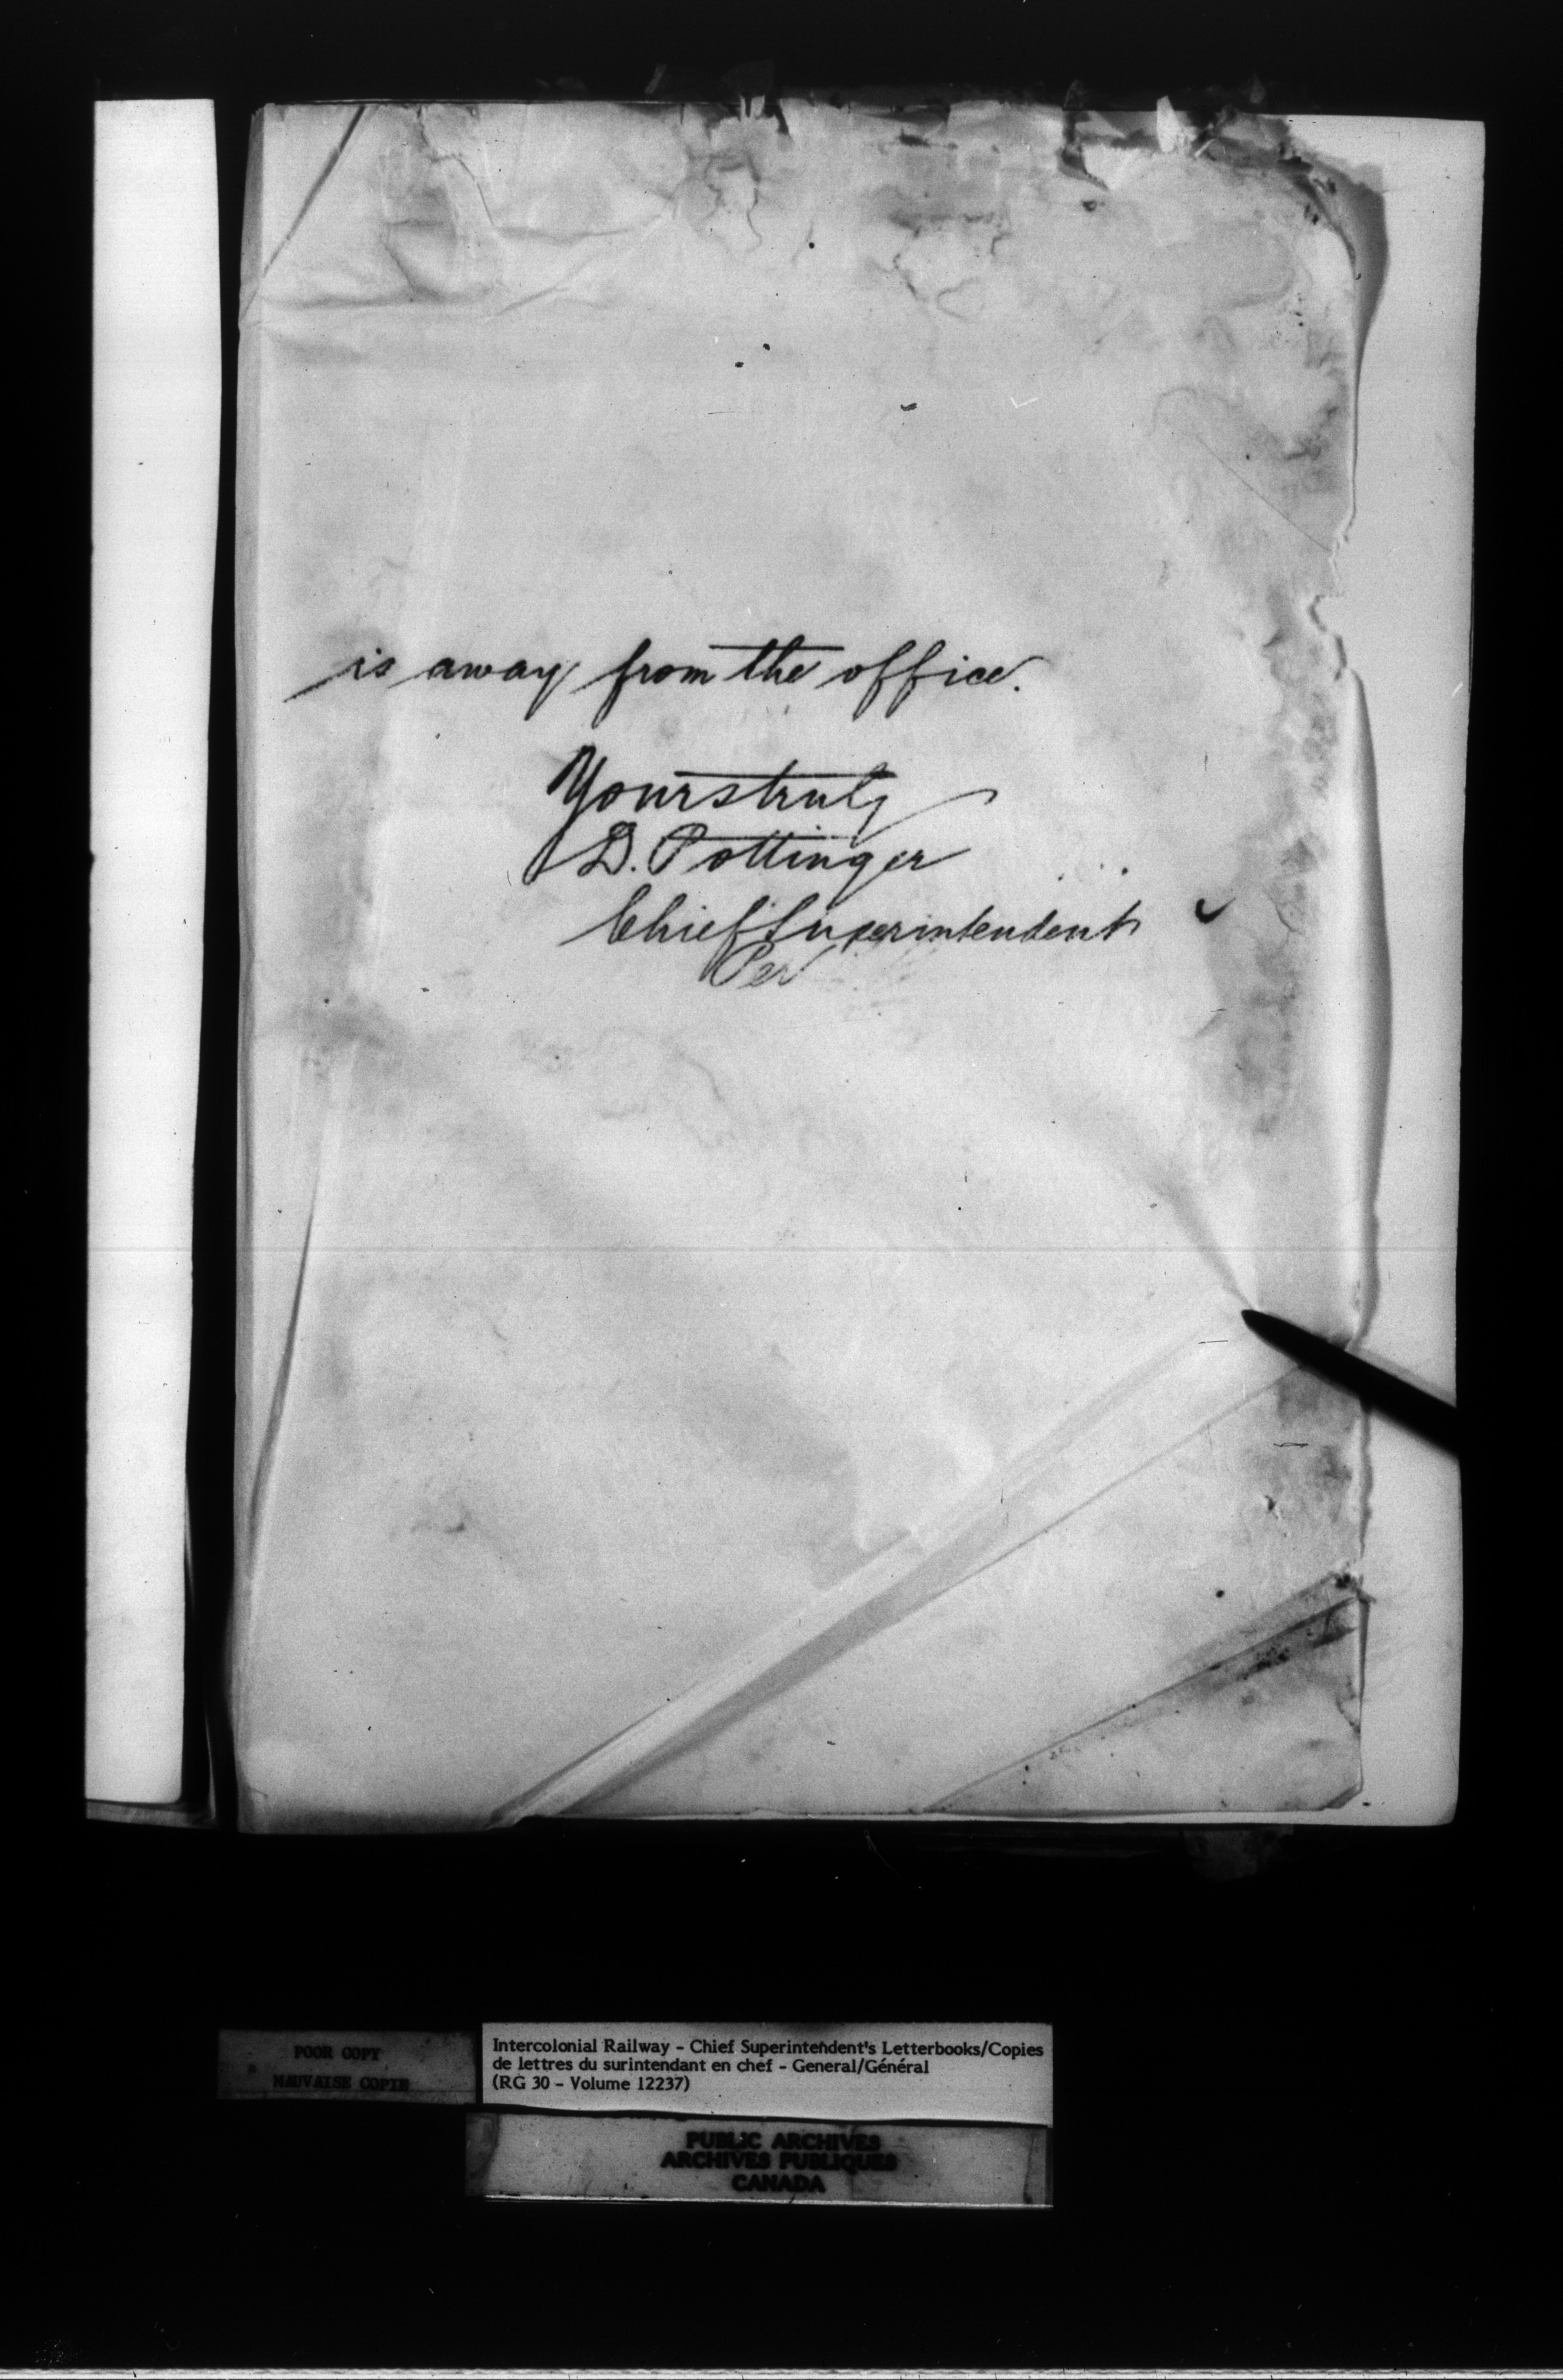 is away from the office.
Yours truly
D. Pottinger
Chief Superintendent
Per
POOR COPY
MAUVAISE COPIE
Intercolonial Railway - Chief Superintendent's Letterbooks/Copies
de lettres du surintendant en chef - General/Général
(RG 30 - Volume 12237)
PUBLIC ARCHIVES
ARCHIVES PUBLIQUES
CANADA